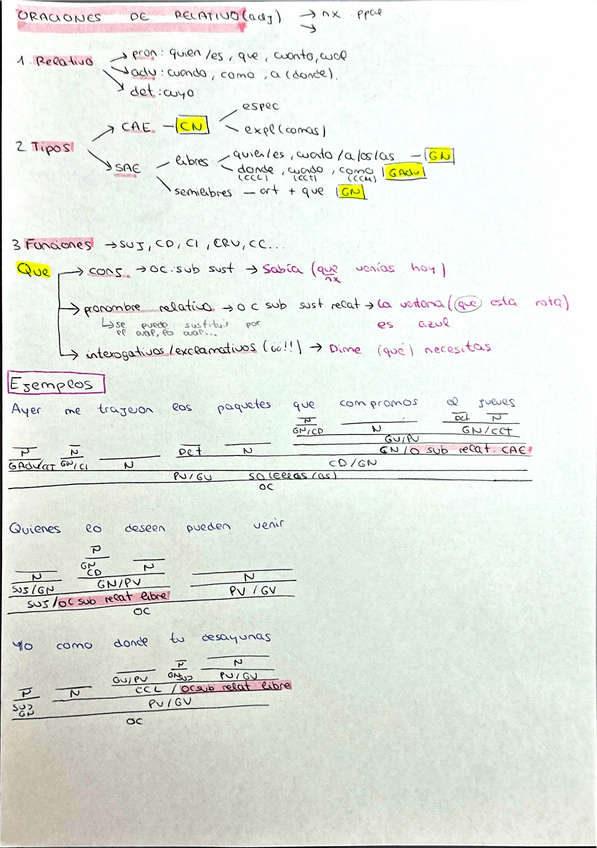 ORACIONES DE RELATIVO (adj) → nx ppal
→
1. Relativo → pron: quien/es, que, cuanto, cual
→ adv: cuando, como, a (donde).
→ det: cuyo
espec
CAE - CN
expl (comas)
2 Tipos
SAE libres quien/es, cuanto/a/os/as - GN
donde, cuando, como GAdv
(CCL) (CCT) (CCM)
semilibres - art + que GN
3 Funciones → SUJ, CD, CI, CRV, CC...
Que → conj. → OC. sub sust → Sabía (que venías hoy)
nx
→ pronombre relativo → OC sub sust relat → La ventana (que esta rota)
↳ se puede sustituir por es azul
el cual, la cual...
→ interogativos/exclamativos (¡¿!!) → Dime (qué) necesitas
Ejemplos
Ayer me trajeron los paquetes que compramos el jueves
N N Det N
GN/CD GN/CCT
GV/PV
N N N Det N GN/O sub relat. CAE
GAdv/CCT GN/CI
CD/GN
PV/GV
OC
Quienes lo deseen pueden venir
N
GN N
CD
N GN/PV N
SUJ/GN PV/GV
SUJ/OC sub relat libre
OC
Yo como donde tu desayunas
N N
GV/PV GN SUJ PV/GV
N N CCL / OC sub relat libre
SUJ PV/GV
GN
OC